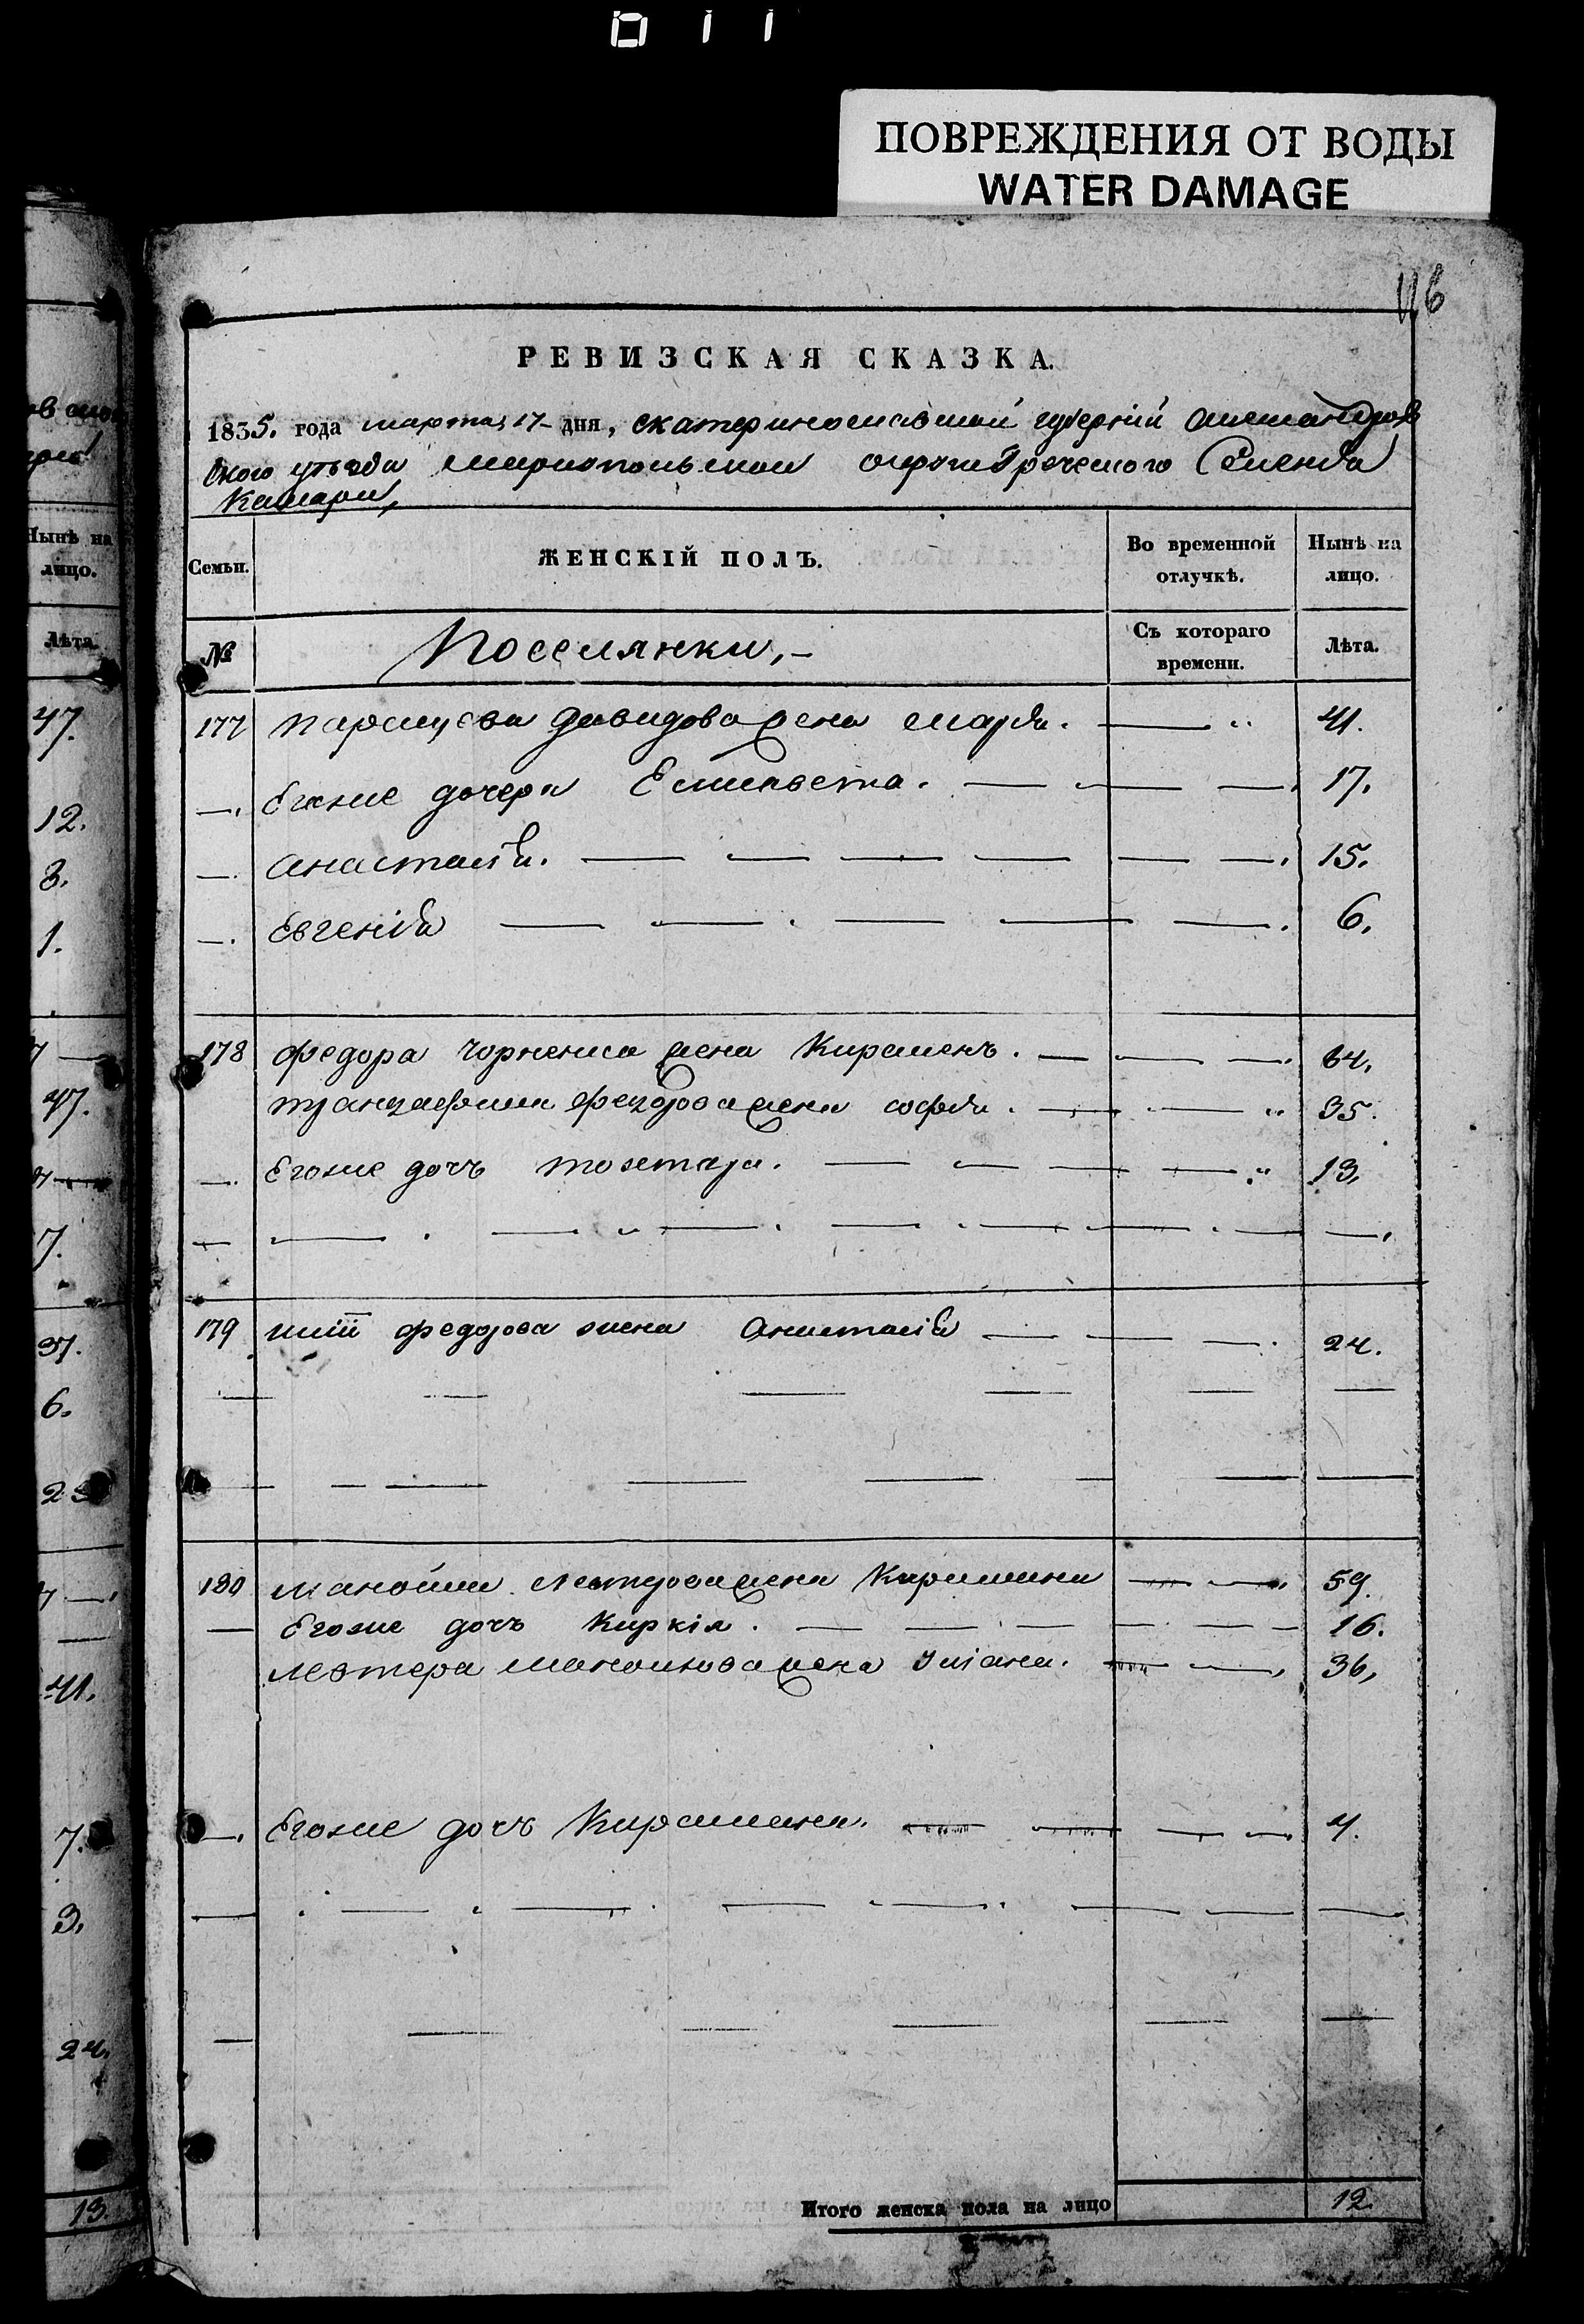 ПОВРЕЖДЕНИЯ ОТ ВОДЫ
WATER DAMAGE
116
РЕВИЗСКАЯ СКАЗКА.
1835. года марта 17- дня, екатеринославской губерніи александров
ского уѣзда мариопольского округа Греческого Селенія
Камари,
Семьи.
ЖЕНСКІЙ ПОЛЪ.
Во временной отлучкѣ.
Нынѣ на лицо.
№
Поселянки,-
Съ котораго времени.
Лѣта.
177 Давидова жена марія. 41.
Егоже дочери Елисавета. 17.
анастасія. 15.
Евгенія 6.
178 федора жена Кираменъ. 64.
федорова жена софія. 35.
Егоже дочъ 13.
179 иліи федорова жена Анастасія 24.
180 манойли жена Кирамана 59.
Егоже дочъ Киркія. 16.
левтера манойлова жена 36,
Егоже дочъ Кирамана. 4.
Итого женска пола на лицо 12.
Нынѣ на лицо.
Лѣта.
47.
12.
3.
1.
47.
7.
37.
6.
41.
7.
3.
24.
13.